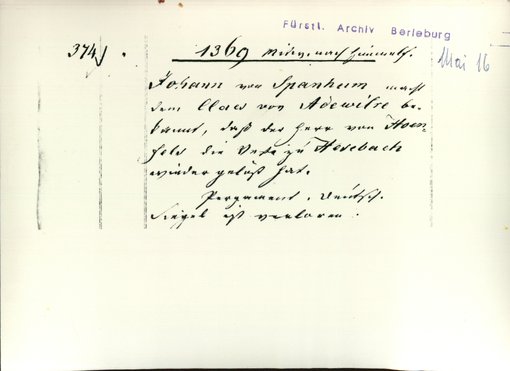 Fürstl. Archiv Berleburg
374
1369 Mittw. nach Himmelf.
Mai 16
Johann von Spanheim macht
dem Claes von Adewilre be-
kannt, daß der Herr von Hoen-
fels die Vete zu Hesebach
wieder gelöst hat.
Pergament, Deutsch.
Siegel ist verloren.